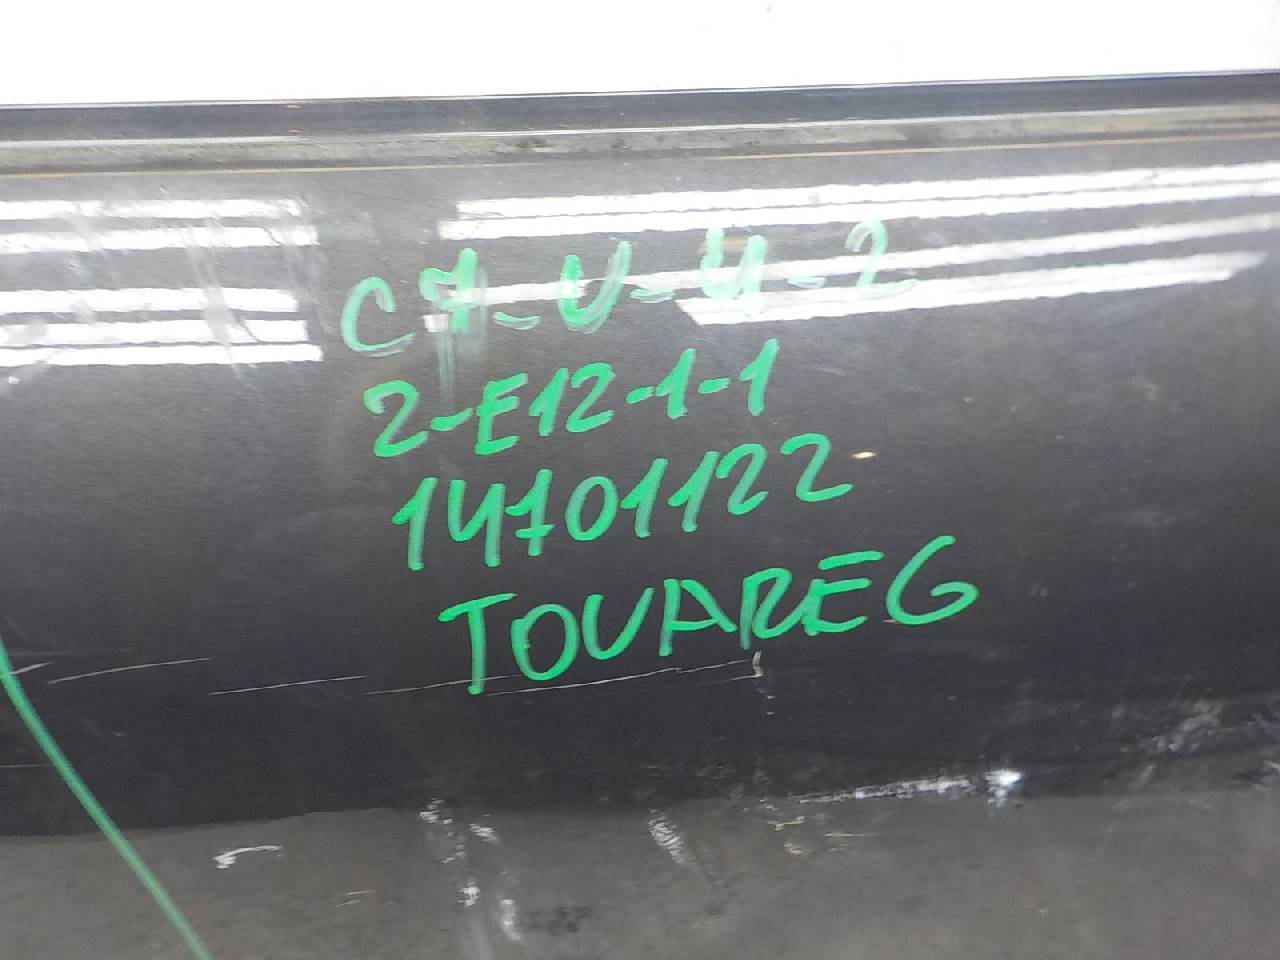 C7-U-4-2
2-E12-1-1
14701122
TOUAREG